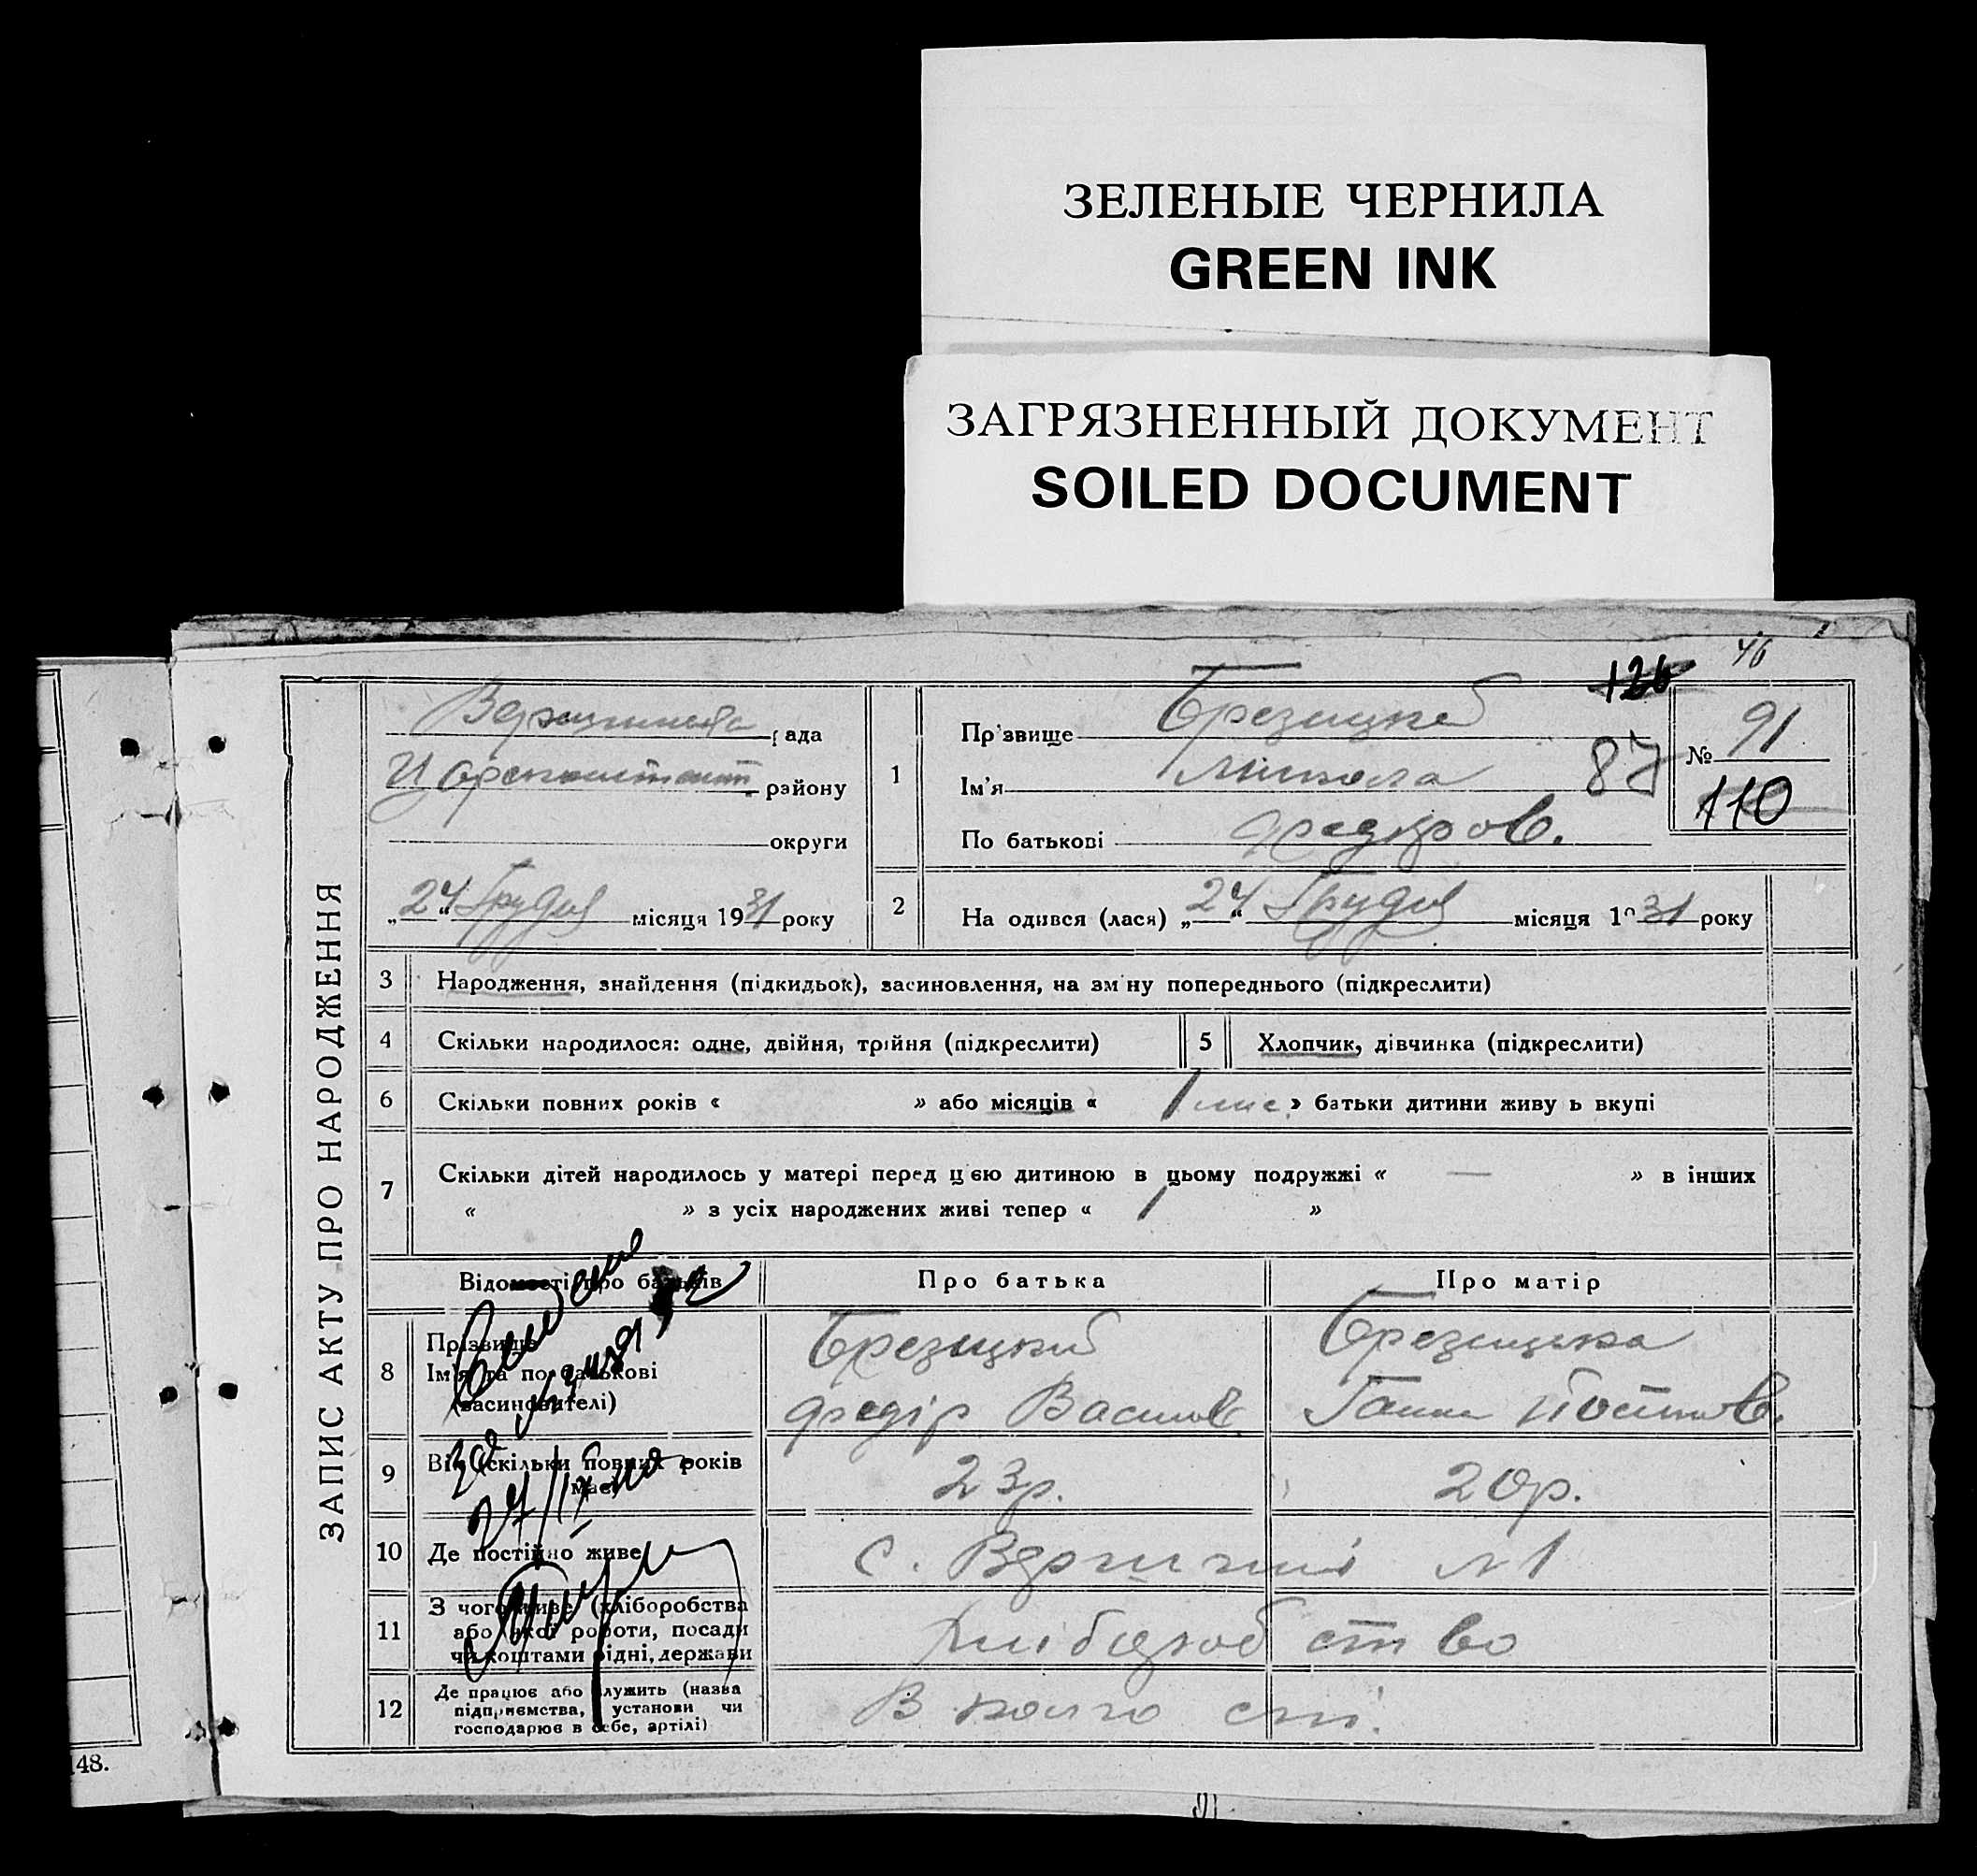 ЗЕЛЕНЫЕ ЧЕРНИЛА
GREEN INK
ЗАГРЯЗНЕННЫЙ ДОКУМЕНТ
SOILED DOCUMENT
46
126
ЗАПИС АКТУ ПРО НАРОДЖЕННЯ
рада
району
округи
„24“ Грудня місяця 1931 року
1
Прізвище Брезицкий
Ім'я Микола
По батькові Федоров.
87
№ 91
110
2 На одився (лася) „24“ Грудня місяця 1931 року
3 Народження, знайдення (підкидьок), засиновлення, на зм ну попереднього (підкреслити)
4 Скільки народилося: одне, двійня, трійня (підкреслити)
5 Хлопчик, дівчинка (підкреслити)
6 Скільки повних років « » або місяців « 1 мис. » батьки дитини живу ь вкупі
7 Скільки дітей народилось у матері перед цією дитиною в цьому подружжі « — » в інших
« » з усіх народжених живі тепер « 1 »
Відомості про батьків
Про батька
Про матір
8 Прізвище
Ім'я та по батькові
(засиновителі)
Брезицкий
Федір Васильов.
Брезицька
Ганна
9 Вік (скільки повних років
має)
23р.
20р.
10 Де постійно живе
с. №1
11 З чого живе (хліборобства
або якої роботи, посади
чи коштами рідні, держави
Хлиборобство
12 Де працює або служить (назва
підприємства, установи чи
господарює в себе, артілі)
В колгоспі.
48.
91